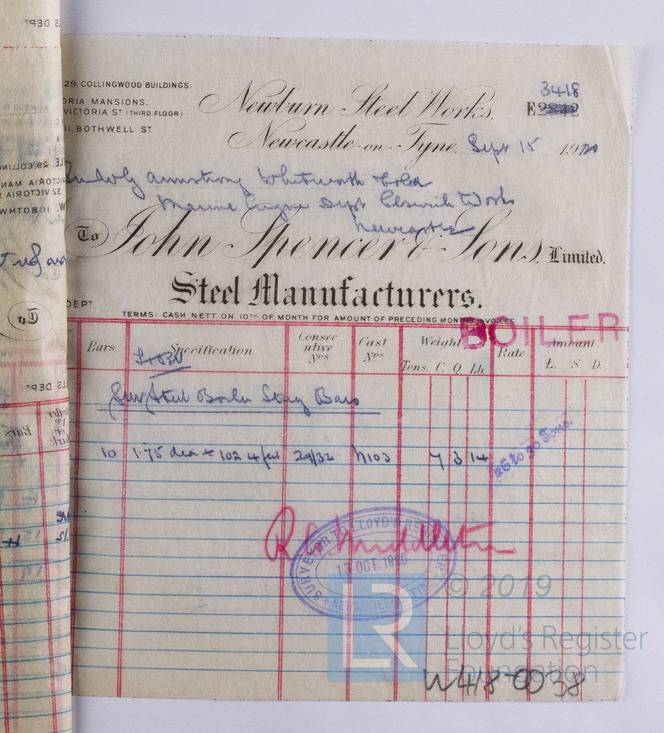 29. COLLINGWOOD BUILDINGS.
ORIA MANSIONS.
VICTORIA ST (THIRD FLOOR)
11. BOTHWELL ST
Newburn Steel Works,
3418
E
Newcastle-on-Tyne, Sept 15 1920
Armstrong Whitworth & Co Ld
Marine Engine Dept Elswick Works
Newcastle
To John Spencer & Sons, Limited.
Steel Manufacturers.
DEPT
TERMS: CASH NETT ON 10TH OF MONTH FOR AMOUNT OF PRECEDING MONTHS INVOICES
BOILER
Bars Specification Consecutive Nos Cast Nos Weight Rate Amount
Tons. C. Q. Lb. £. S D.
Steel Boiler Stay Bars
10 1.75 dia × 102 4 29/32 N103 7 3 14
26 to 30 Tons.
SURVEYOR TO LLOYD'S REGISTER
13 OCT. 1920
NEWCASTLE
R Middleton
LR
© 2019
Lloyd's Register
Foundation
W418-0038